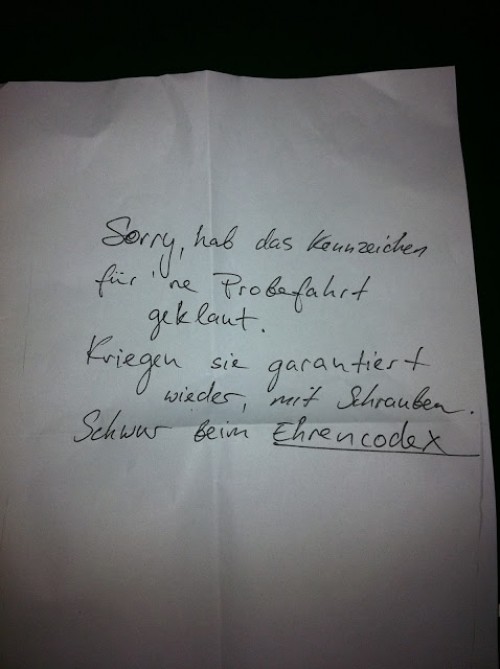 Sorry, hab das Kennzeichen
für 'ne Probefahrt
geklaut.
Kriegen sie garantiert
wieder, mit Schrauben.
Schwur beim Ehrencodex